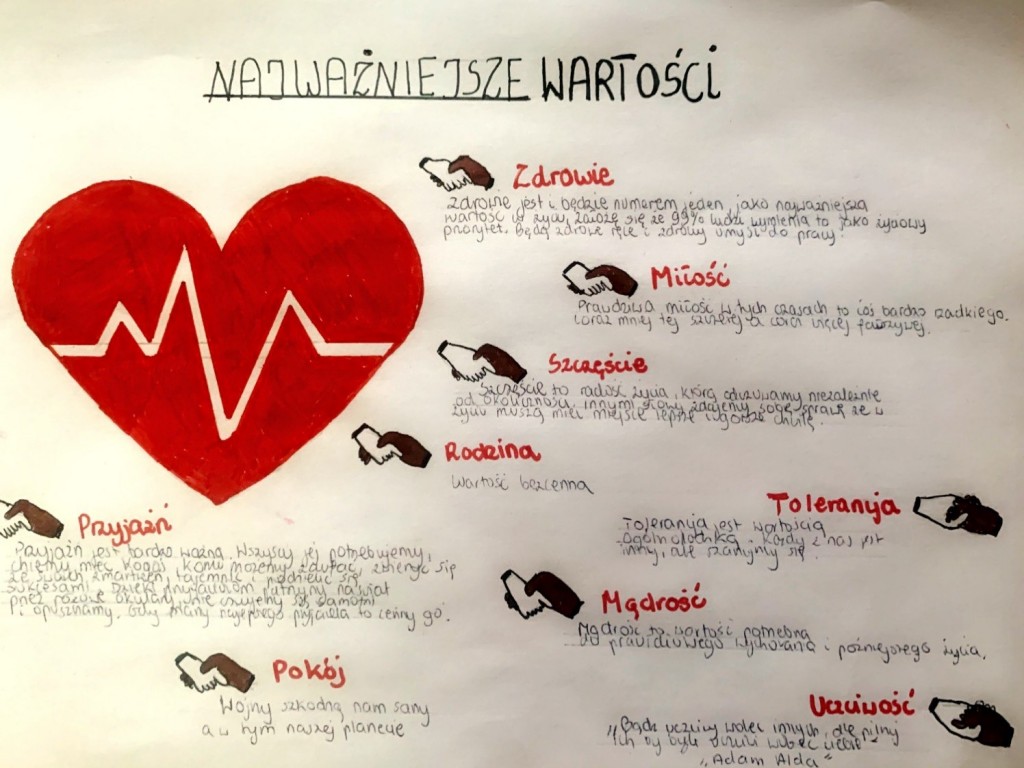 NAJWAŻNIEJSZE WARTOŚCI
Zdrowie
Zdrowie jest i będzie numerem jeden, jako najważniejsza
wartość w życiu, założę się że 99% ludzi wymienia to jako życiowy
priorytet. Będą zdrowe ręce i zdrowy umysł do pracy.
Miłość
Prawdziwa miłość w tych czasach to coś bardzo rzadkiego.
coraz mniej tej szczerej a coraz więcej fałszywej.
Szczęście
Szczęście to radość życia, którą odczuwamy niezależnie
od okoliczności, innymi słowy zdajemy sobie sprawę że w
życiu muszą mieć miejsce lepsze i gorsze chwile.
Rodzina
Wartość bezcenna
Tolerancja
Tolerancja jest wartością
ogólnoludzką. Każdy z nas jest
inny, ale szanujmy się.
Przyjaźń
Przyjaźń jest bardzo ważna. Wszyscy jej potrzebujemy,
chcemy mieć kogoś komu możemy zaufać, zwierzyć się
ze swoich zmartwień, tajemnic i podzielić się
sukcesami. Dzięki przyjaciołom patrzymy na świat
przez różowe okulary, nie czujemy się samotni
i opuszczeni. Gdy mamy najlepszego przyjaciela to ceńmy go.
Mądrość
Mądrość to wartość potrzebna
do prawidłowego wychowania i późniejszego życia.
Pokój
Wojny szkodzą nam samym
a w tym naszej planecie
Uczciwość
"Bądź uczciwy wobec innych, ale pilnuj
ich by byli wobec ciebie"
"Adam Alda"